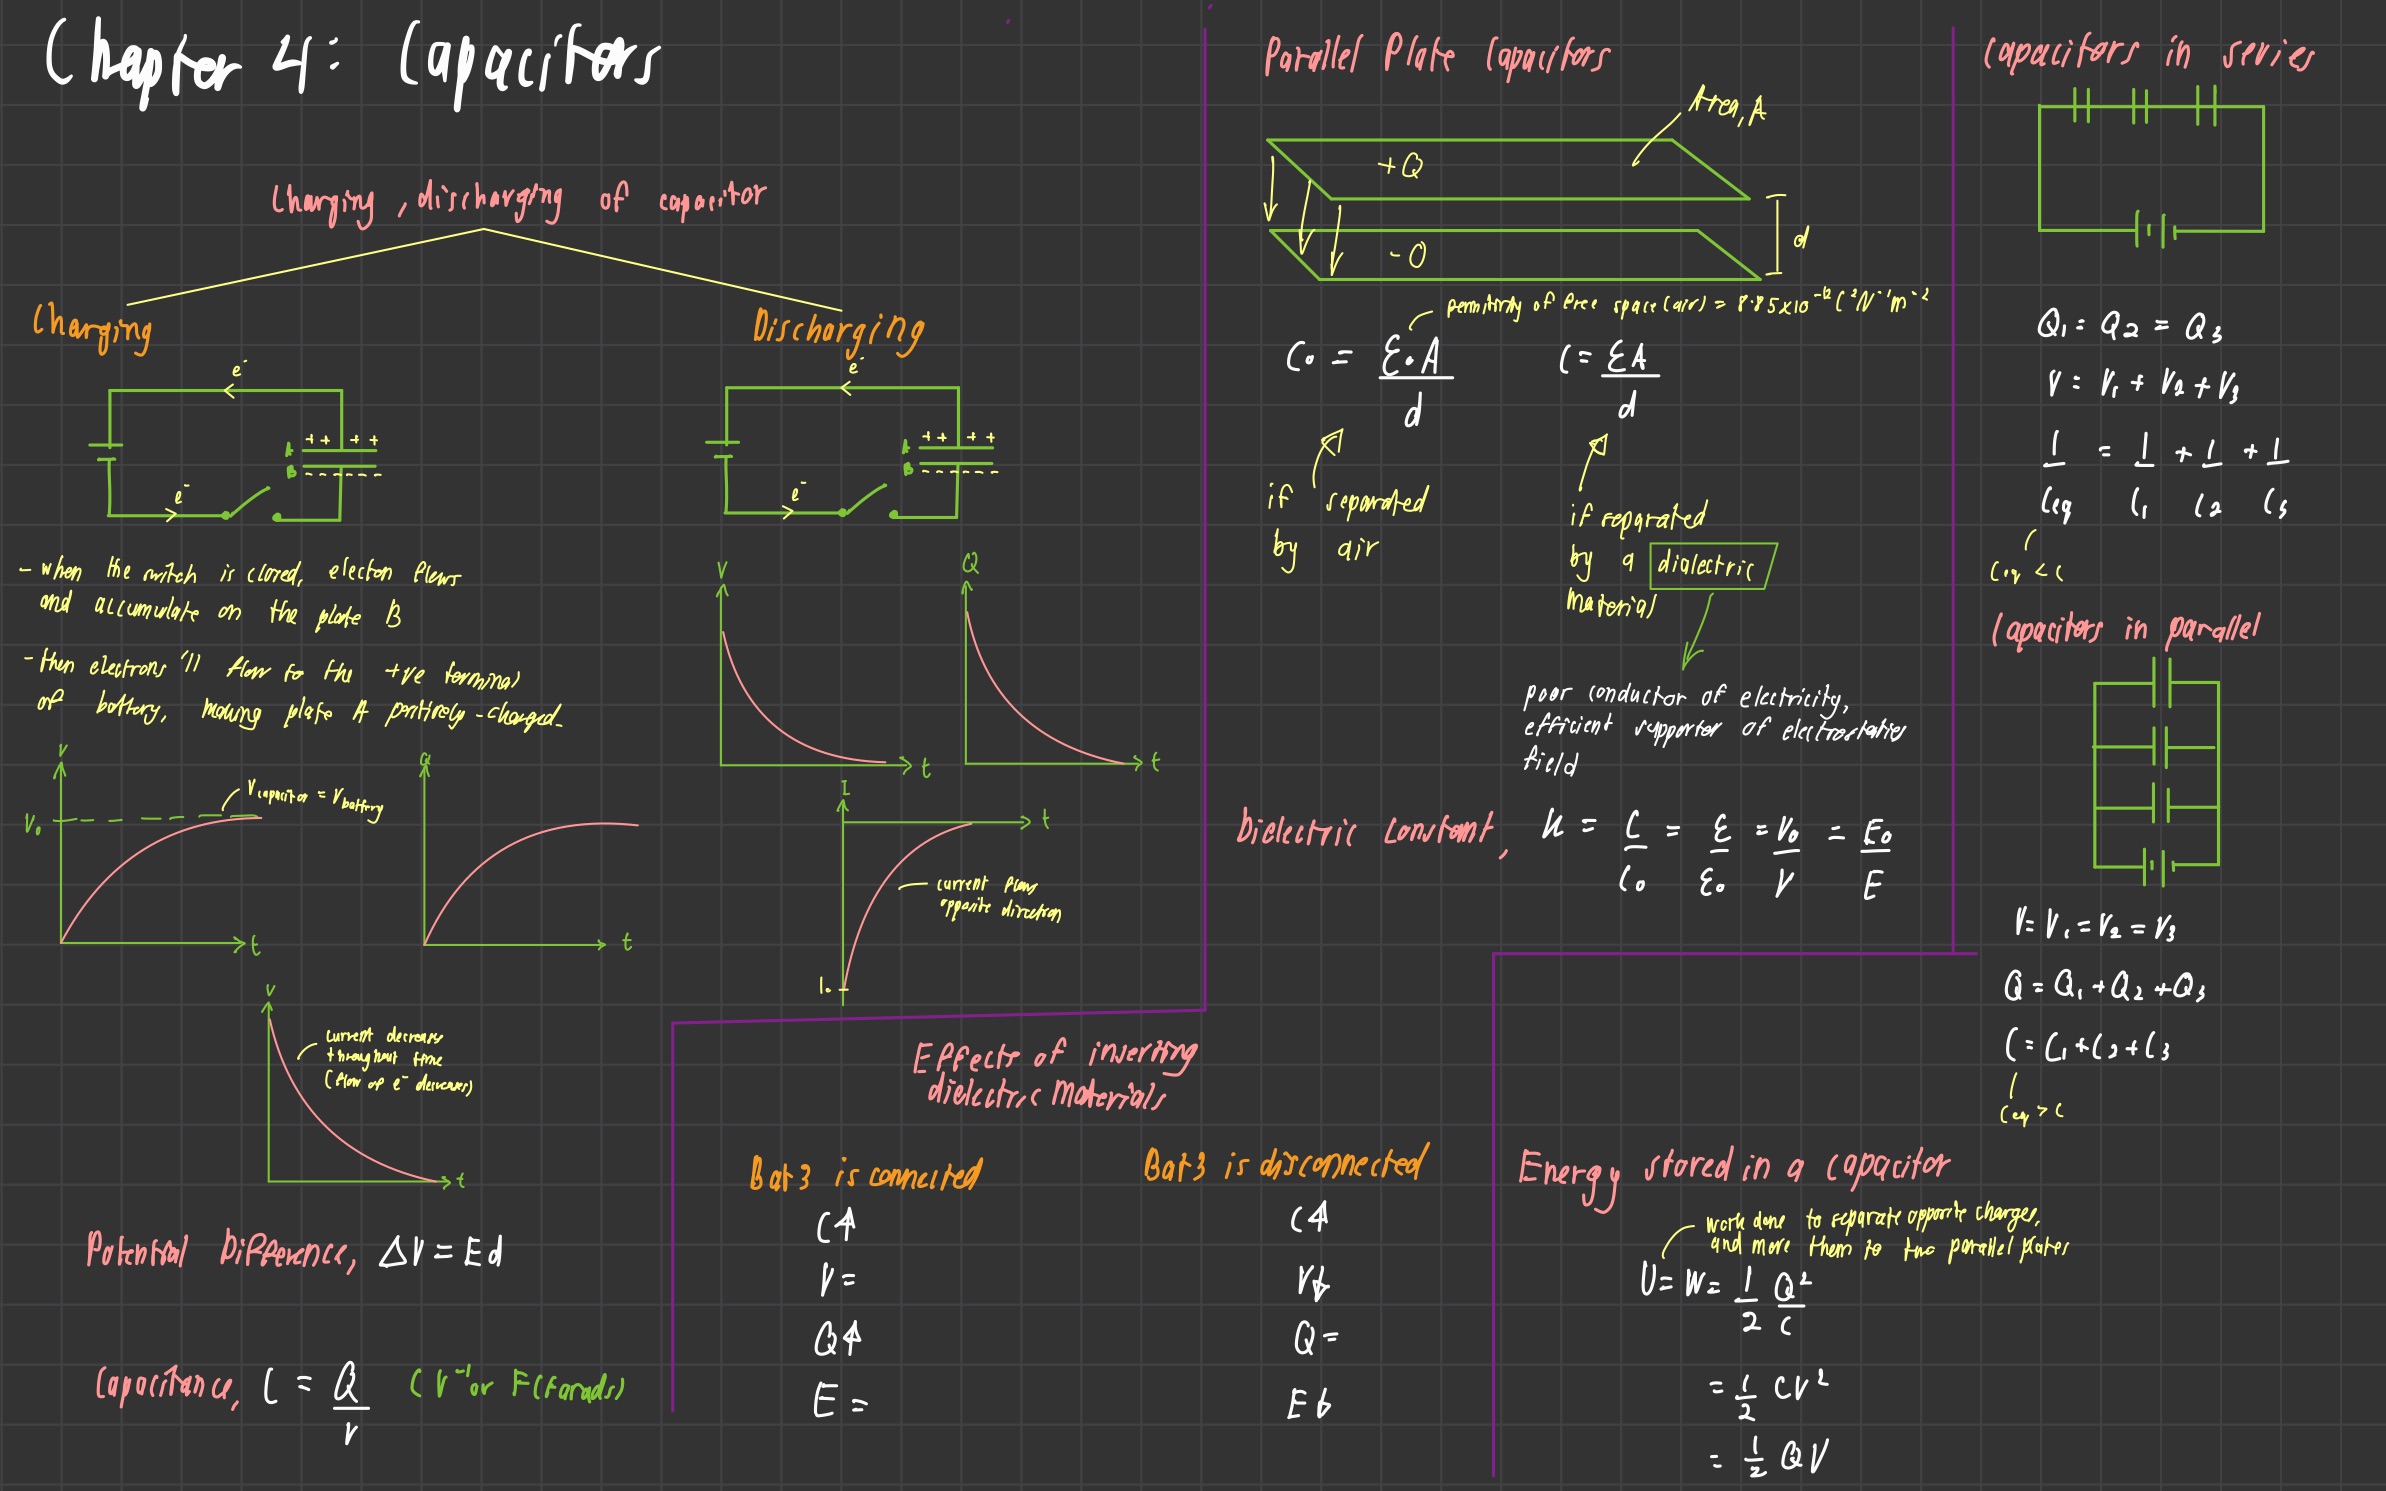 Chapter 4: Capacitors
Charging, discharging of capacitor
Charging
e⁻
A
+ + + +
B
- - - - - -
e⁻
- when the switch is closed, electon flows
and accumulate on the plate B
- then electrons 'll flow to the +ve terminal
of battery, making plate A positively-charged.
V
V₀
V capacitor = V battery
t
Q
t
V
current decreases
throughout time
(flow of e⁻ decreases)
t
Potential Difference, ΔV = Ed
Capacitance, C = Q/V CV⁻¹ or F(Farads)
Discharging
e⁻
A
+ + + +
B
- - - - - -
e⁻
V
t
Q
t
I
t
current flows
opposite direction
I₀
Effects of inserting
dielectric materials
Bat3 is connected
C↑
V =
Q↑
E =
Bat3 is disconnected
C↑
V↓
Q =
E↓
Parallel Plate Capacitors
Area, A
+Q
-Q
d
permitivity of free space (air) = 8.85x10⁻¹² C²N⁻¹m⁻²
C₀ = ε₀A/d
C = εA/d
if separated
by air
if separated
by a dialectric
material
poor conductor of electricity,
efficient supporter of electrostatics
field
Dielectric constant, K = C/C₀ = ε/ε₀ = V₀/V = E₀/E
Capacitors in series
Q₁ = Q₂ = Q₃
V = V₁ + V₂ + V₃
1/Ceq = 1/C₁ + 1/C₂ + 1/C₃
Ceq < C
Capacitors in parallel
V = V₁ = V₂ = V₃
Q = Q₁ + Q₂ + Q₃
C = C₁ + C₂ + C₃
Ceq > C
Energy stored in a capacitor
work done to separate opposite charges,
and move them to two parallel plates
U = W = 1/2 Q²/C
= 1/2 CV²
= 1/2 QV